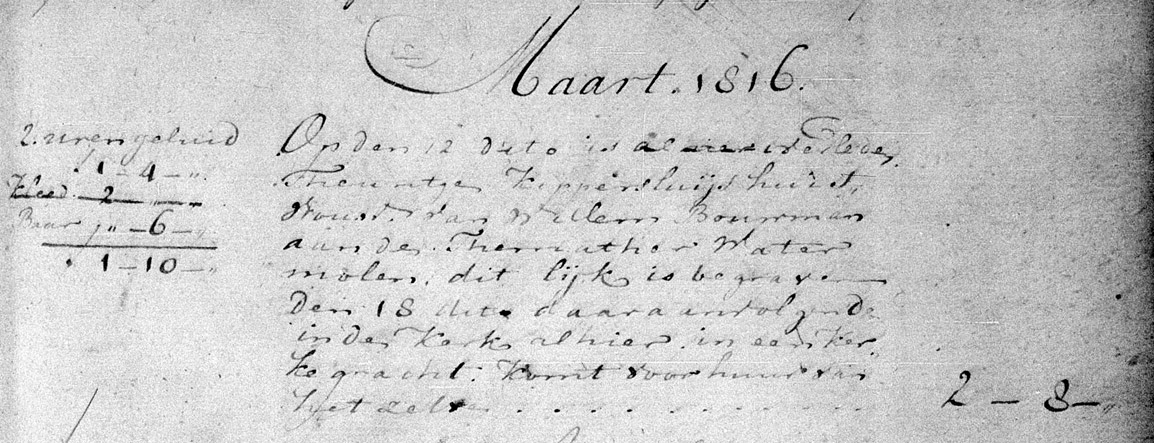 Maart. 1816.
2. uren geluid
1 - 4 - „
Kleed 2 - „
Baar „ - 6 - „
1 - 10 - „
Op den 12 dito is alhier overleden
Theuntje Kippersluijs huist,
vrouw van Willem Bouwman
aan de Themather Water
molen. dit lijk is begraven
den 18 dito daaraanvolgende
in de Kerk alhier in een Ker
ke gracht. Komt voor huur van
het zelve . . . . . . . . . . 2 - 8 - „